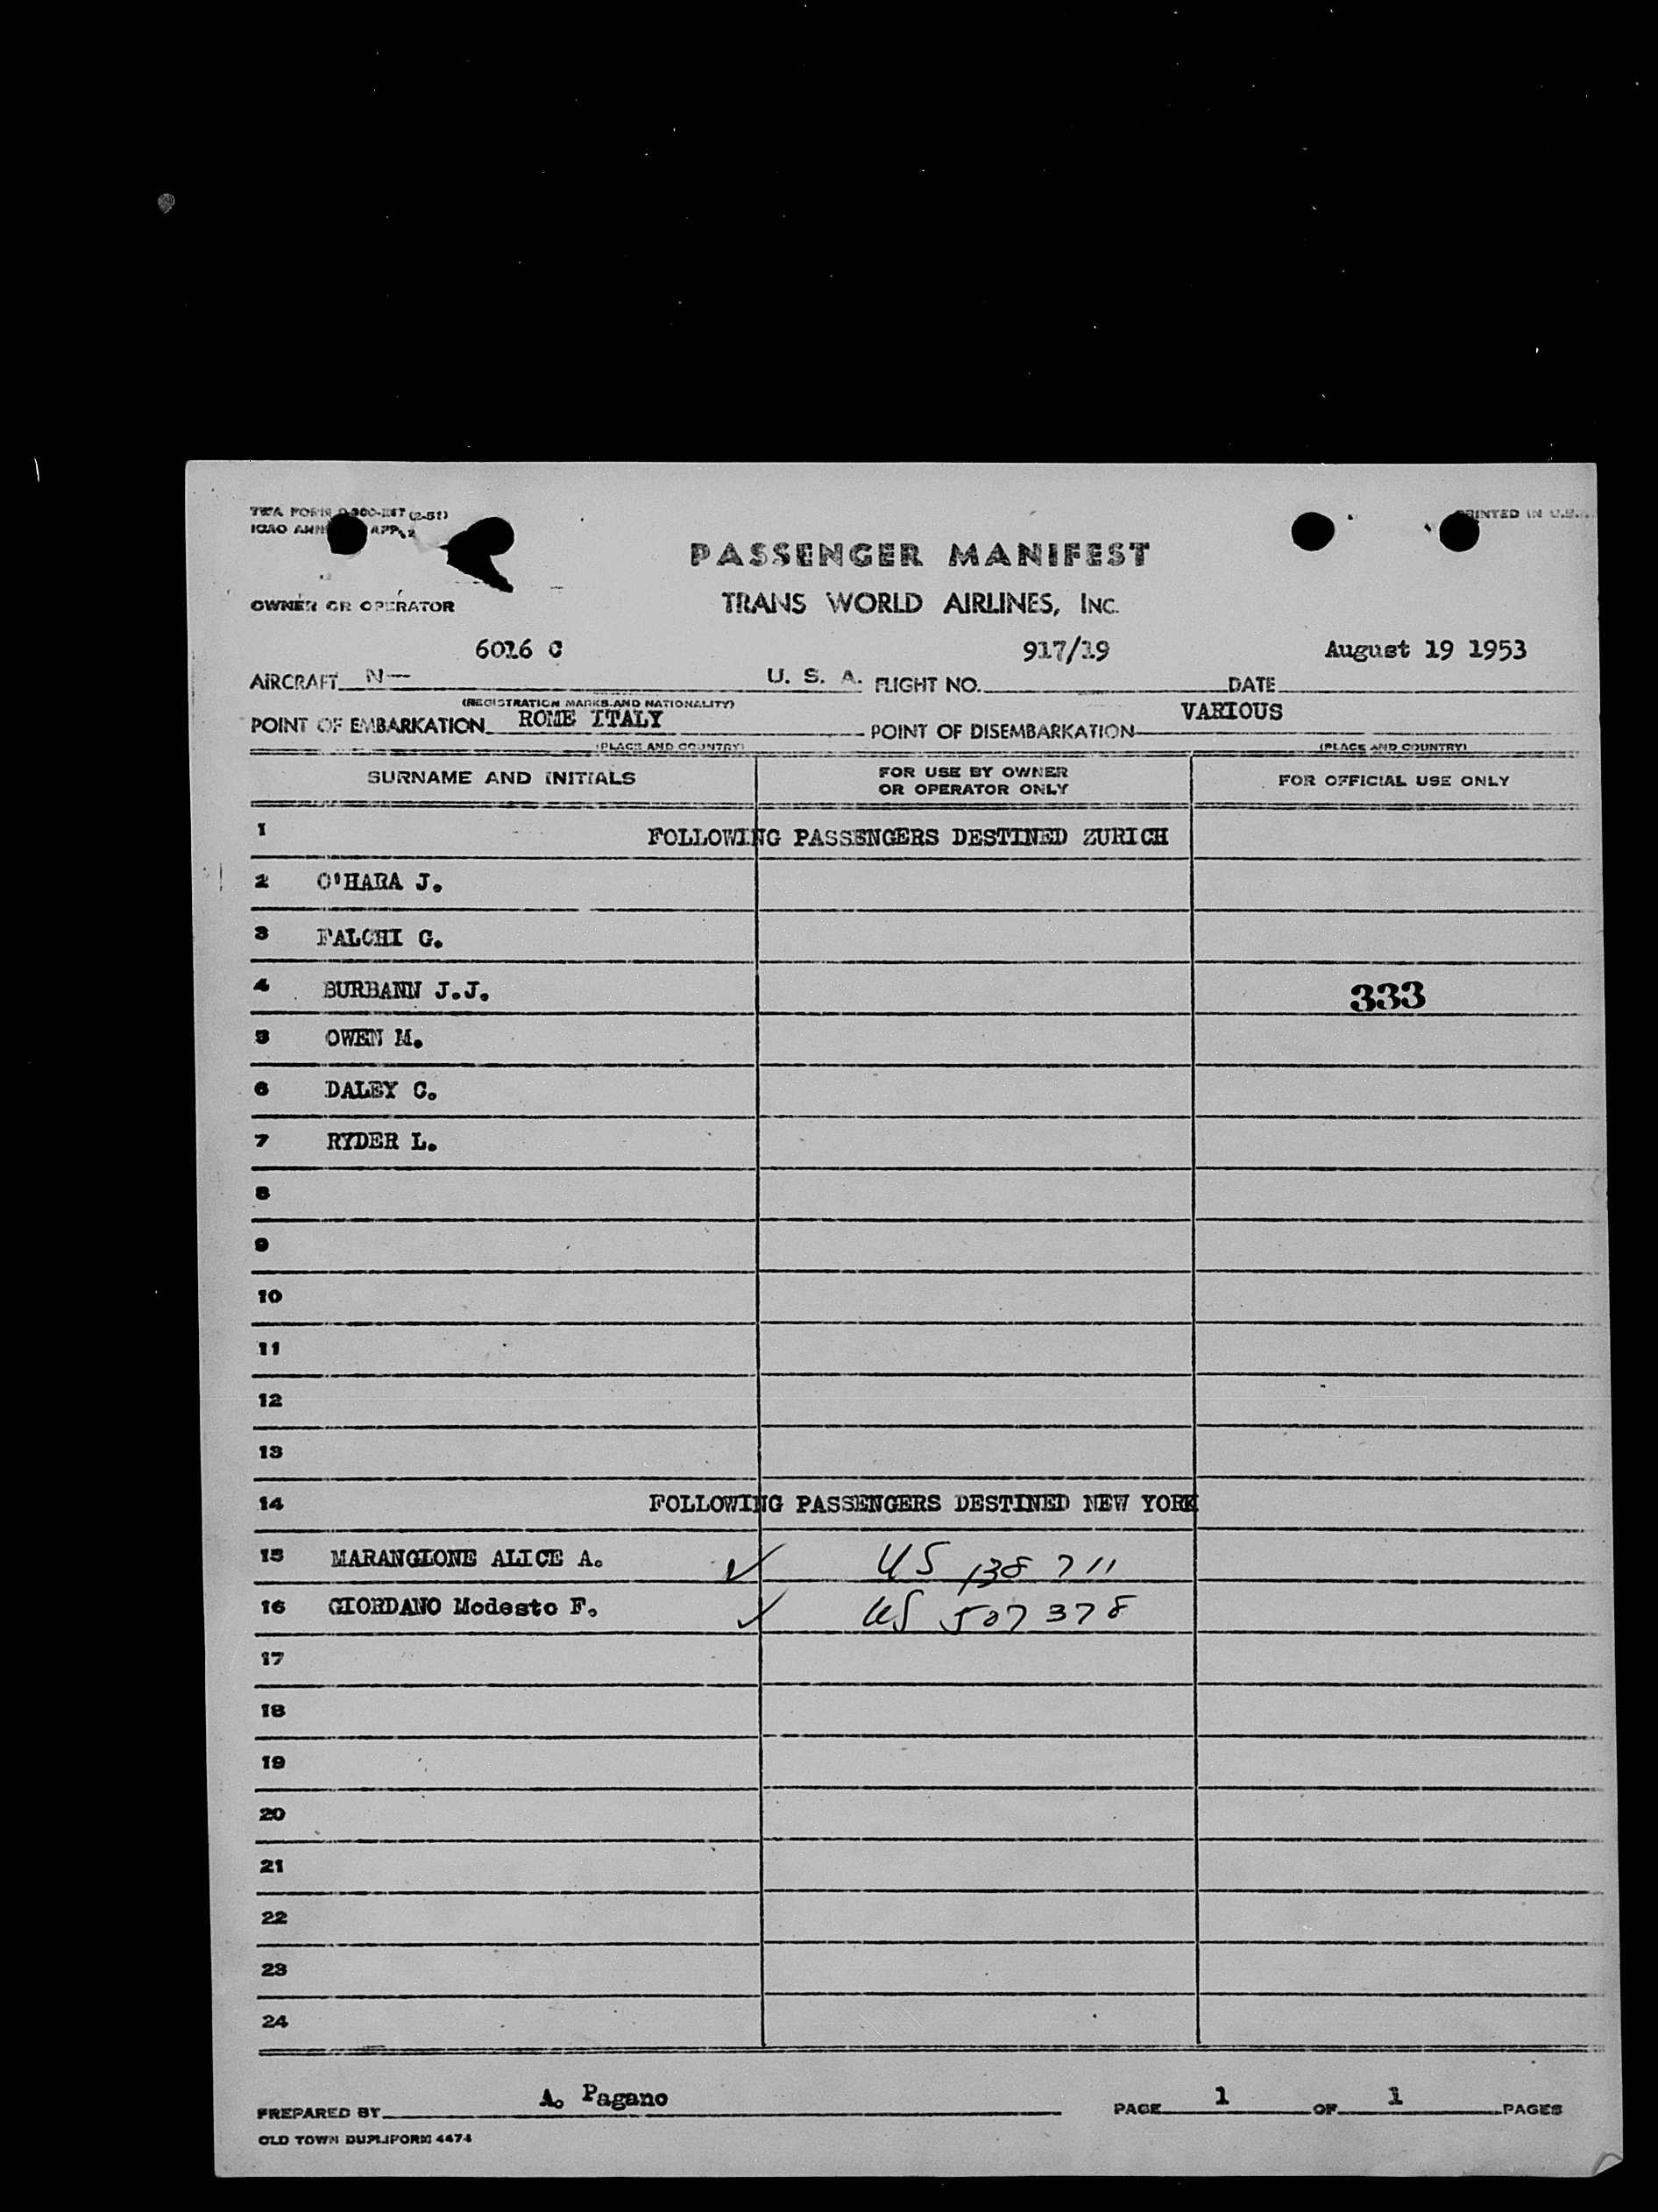 TWA FORM
ICAO ANN APP. 2
PRINTED IN U.S.
PASSENGER MANIFEST
OWNER OR OPERATOR
TRANS WORLD AIRLINES, INC.
6026 C 917/19 August 19 1953
AIRCRAFT N— U. S. A. FLIGHT NO. DATE
(REGISTRATION MARKS AND NATIONALITY)
POINT OF EMBARKATION ROME ITALY POINT OF DISEMBARKATION VARIOUS
(PLACE AND COUNTRY) (PLACE AND COUNTRY)
SURNAME AND INITIALS FOR USE BY OWNER OR OPERATOR ONLY FOR OFFICIAL USE ONLY
1 FOLLOWING PASSENGERS DESTINED ZURICH
2 O'HARA J.
3 FALCHI G.
4 BURBANN J.J. 333
5 OWEN M.
6 DALEY C.
7 RYDER L.
8
9
10
11
12
13
14 FOLLOWING PASSENGERS DESTINED NEW YORK
15 MARANGIONE ALICE A. ✓ US 138 711
16 GIORDANO Modesto F. ✓ US 507 378
17
18
19
20
21
22
23
24
PREPARED BY A. Pagano PAGE 1 OF 1 PAGES
OLD TOWN DUPLIFORM 4474